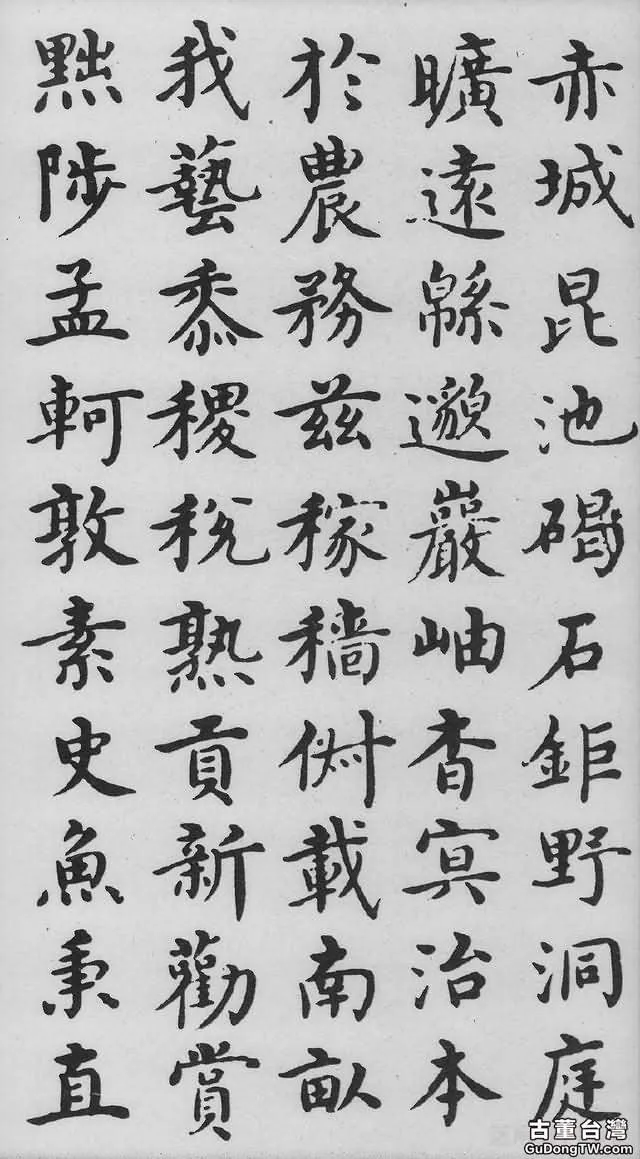 赤城昆池碣石鉅野洞庭
曠遠緜邈巖岫杳冥治本
於農務茲稼穡俶載南畝
我藝黍稷稅熟貢新勸賞
黜陟孟軻敦素史魚秉直
古董台灣
GuDongTW.com